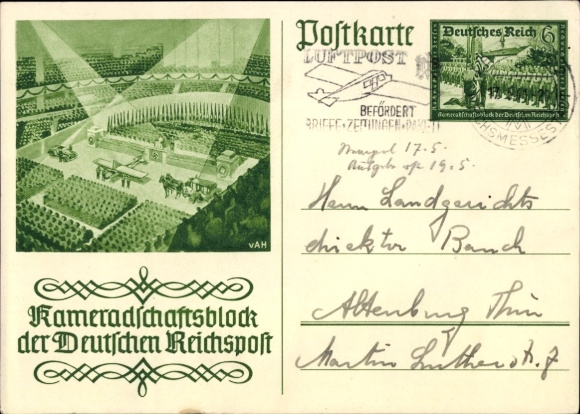 Postkarte
Deutsches Reich 6
LUFTPOST
BEFÖRDERT
BRIEFE·ZEITUNGEN·PÄCKCHEN
Kameradschaftsblock der Deutschen Reichspost
17.5.
19.5.
Herrn Landgerichts
direktor Bauch
Altenburg Thür
Martin Luther str. 7
vAH
Kameradschaftsblock
der Deutschen Reichspost